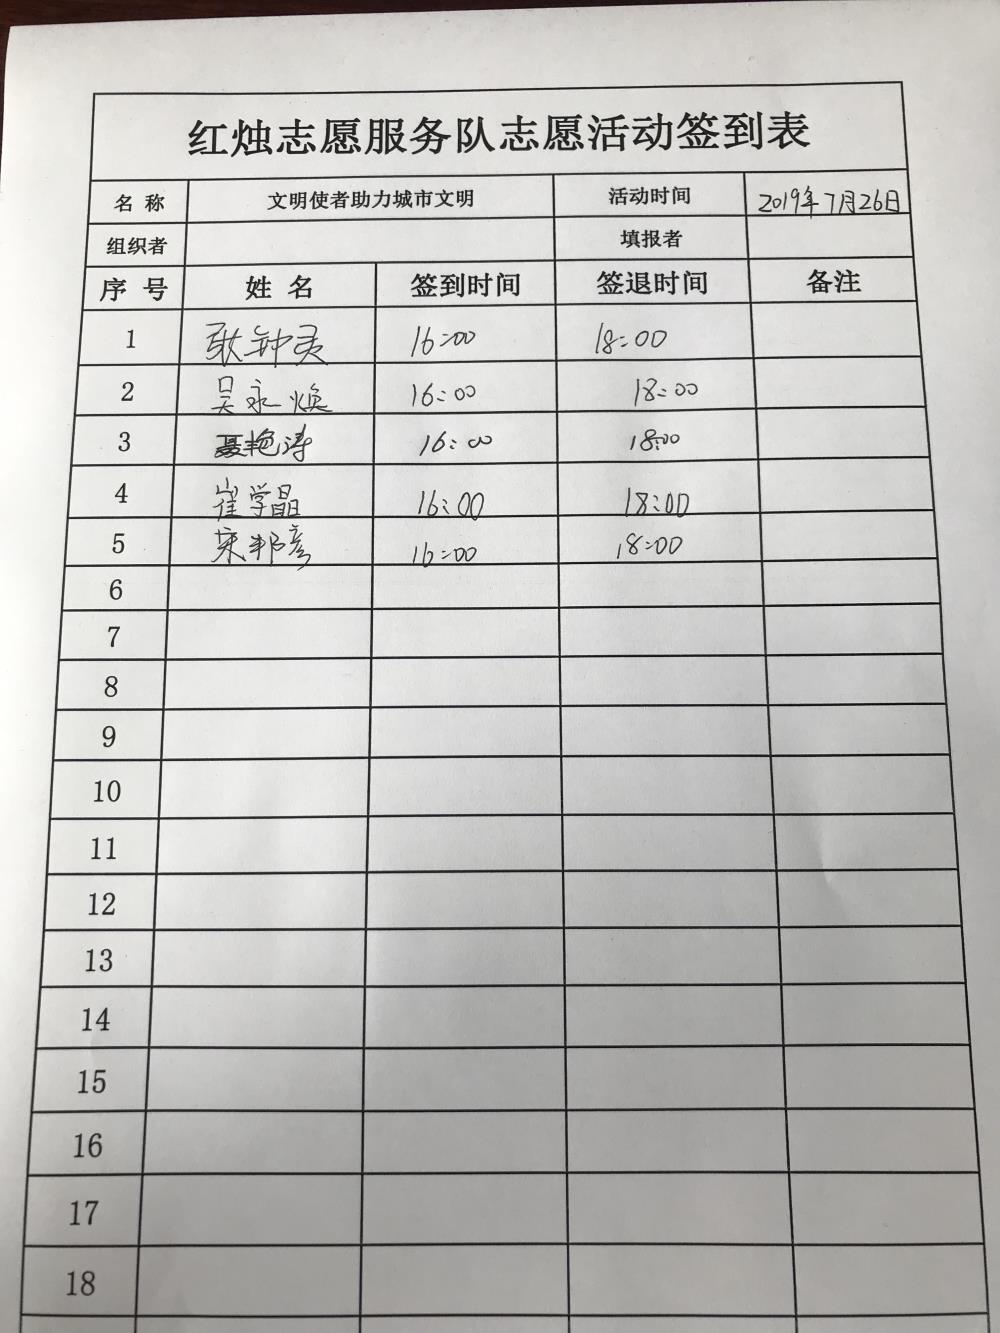 红烛志愿服务队志愿活动签到表
名 称 文明使者助力城市文明 活动时间 2019年7月26日
组织者 填报者
序 号 姓 名 签到时间 签退时间 备注
1 耿钟灵 16:00 18:00
2 吴永焕 16:00 18:00
3 聂艳涛 16:00 18:00
4 崔学晶 16:00 18:00
5 宋邦彦 16:00 18:00
6
7
8
9
10
11
12
13
14
15
16
17
18